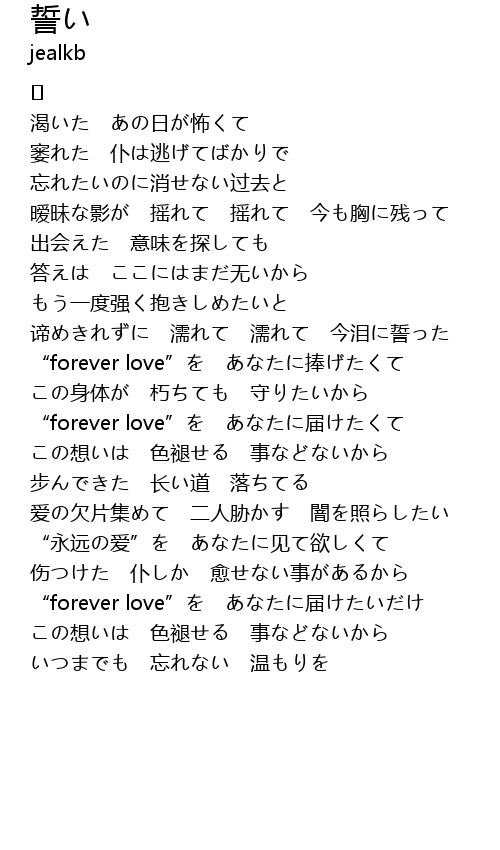 誓い
jealkb
[]
渇いた　あの日が怖くて
窭れた　仆は逃げてばかりで
忘れたいのに消せない过去と
暧昧な影が　揺れて　揺れて　今も胸に残って
出会えた　意味を探しても
答えは　ここにはまだ无いから
もう一度强く抱きしめたいと
谛めきれずに　濡れて　濡れて　今泪に誓った
“forever love”を　あなたに捧げたくて
この身体が　朽ちても　守りたいから
“forever love”を　あなたに届けたくて
この想いは　色褪せる　事などないから
歩んできた　长い道　落ちてる
爱の欠片集めて　二人胁かす　闇を照らしたい
“永远の爱”を　あなたに见て欲しくて
伤つけた　仆しか　愈せない事があるから
“forever love”を　あなたに届けたいだけ
この想いは　色褪せる　事などないから
いつまでも　忘れない　温もりを